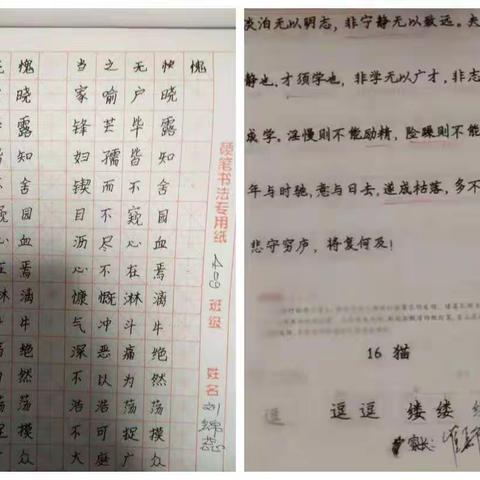 愧 当之无快 愧
晓 家喻户晓
露 锋芒毕露
知 妇孺皆知
舍 锲而不舍
园 目不窥园
血 沥尽心血
焉 心不在焉
滴 慷慨淋滴
牛 气冲斗牛
绝 深恶痛绝
然 不以为然
荡 浩浩荡荡
摸 不可捉摸
众 大庭广众
硬笔书法专用纸
6-4 班级
姓名 刘
泊无以明志，非宁静无以致远。夫
静也，才须学也，非学无以广才，非志
成学。淫慢则不能励精，险躁则不能
年与时驰，意与日去，遂成枯落，多不
悲守穷庐，将复何及！
16 猫
逗 逗逗 缕缕
家长：